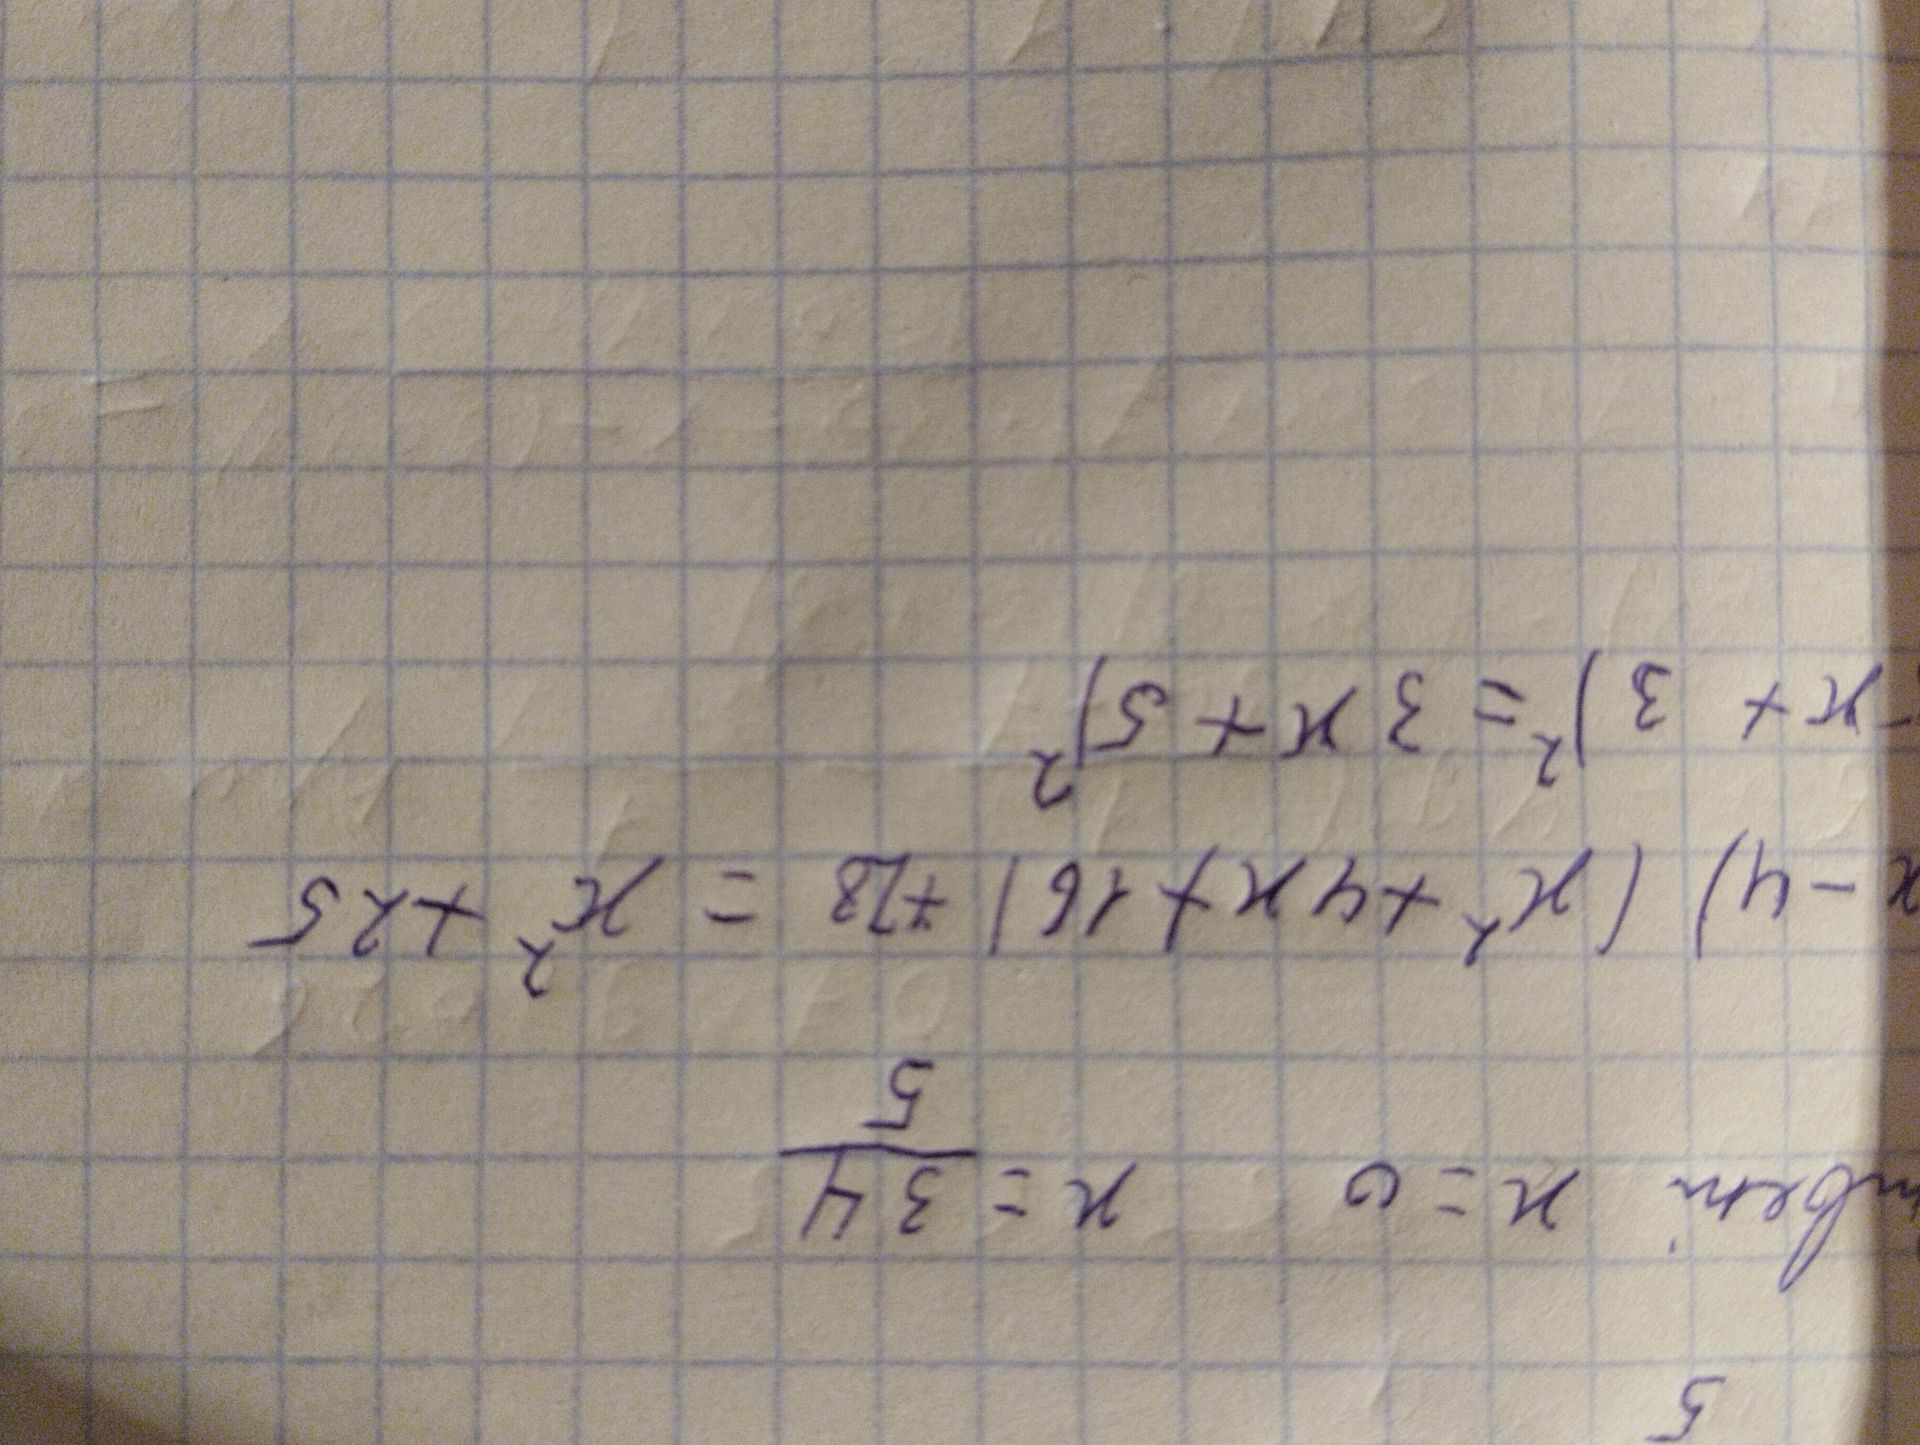 5
x=0 x=34/5
x-4) (x²+4x+16)+78 = x²+25
-x+3)²=3x+5)²